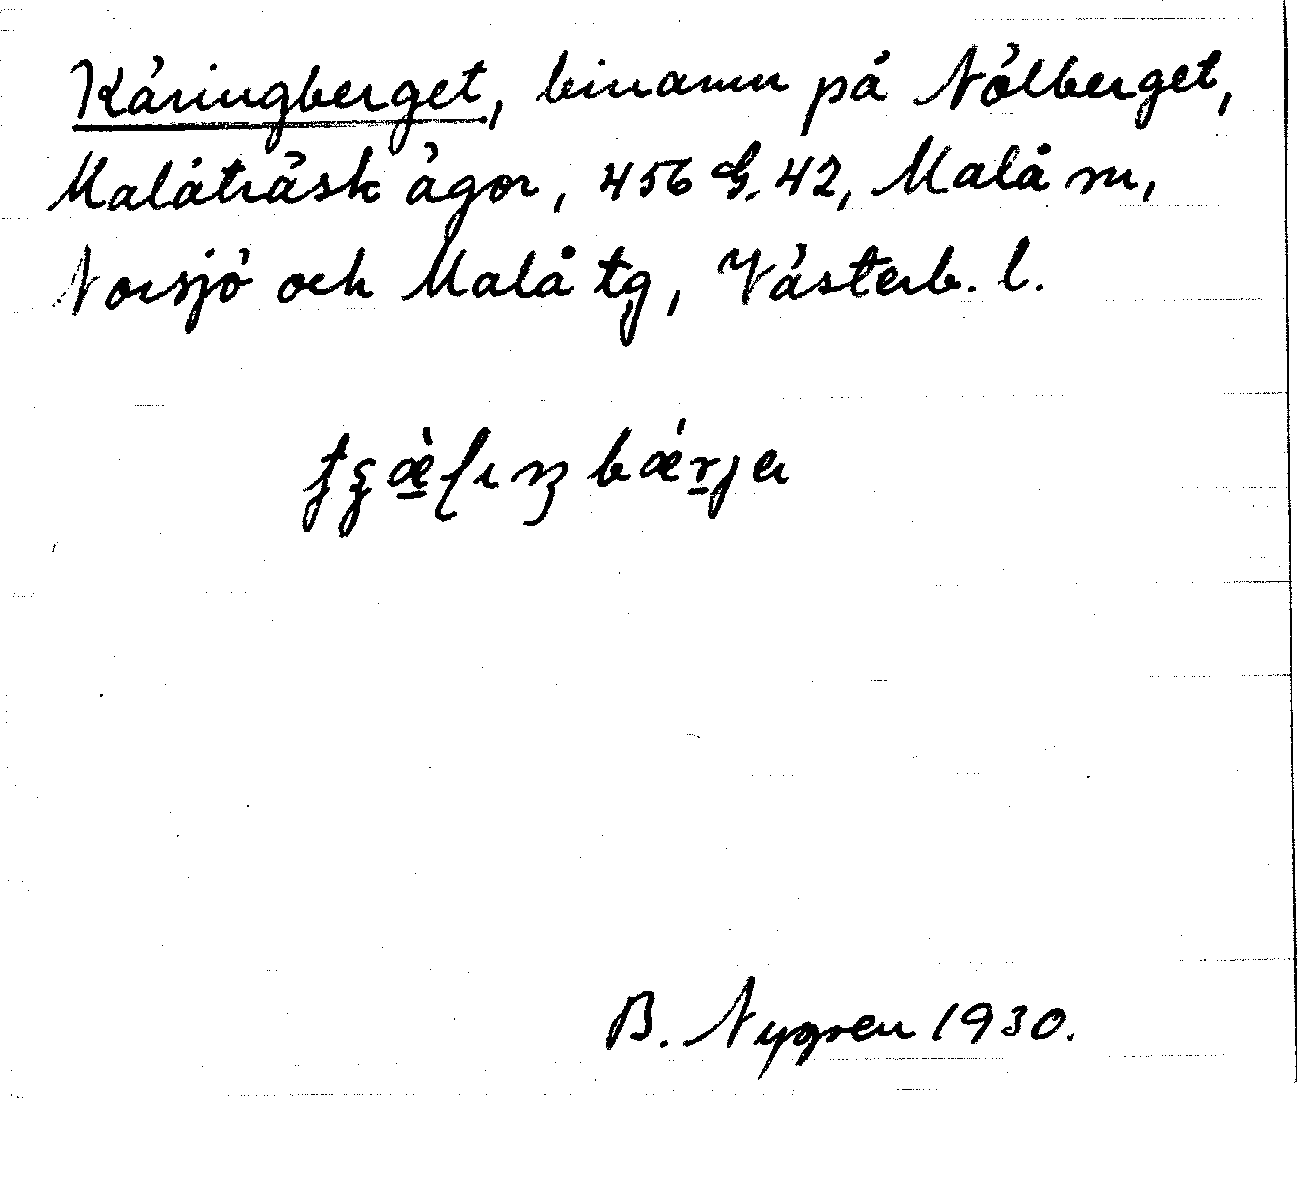 Käringberget, binamn på Nölberget,
Malåträsk ägor, 456 G. 42, Malå sn,
Norsjö och Malå tg, Västerb. l.
bǽrja
B. Nygren 1930.